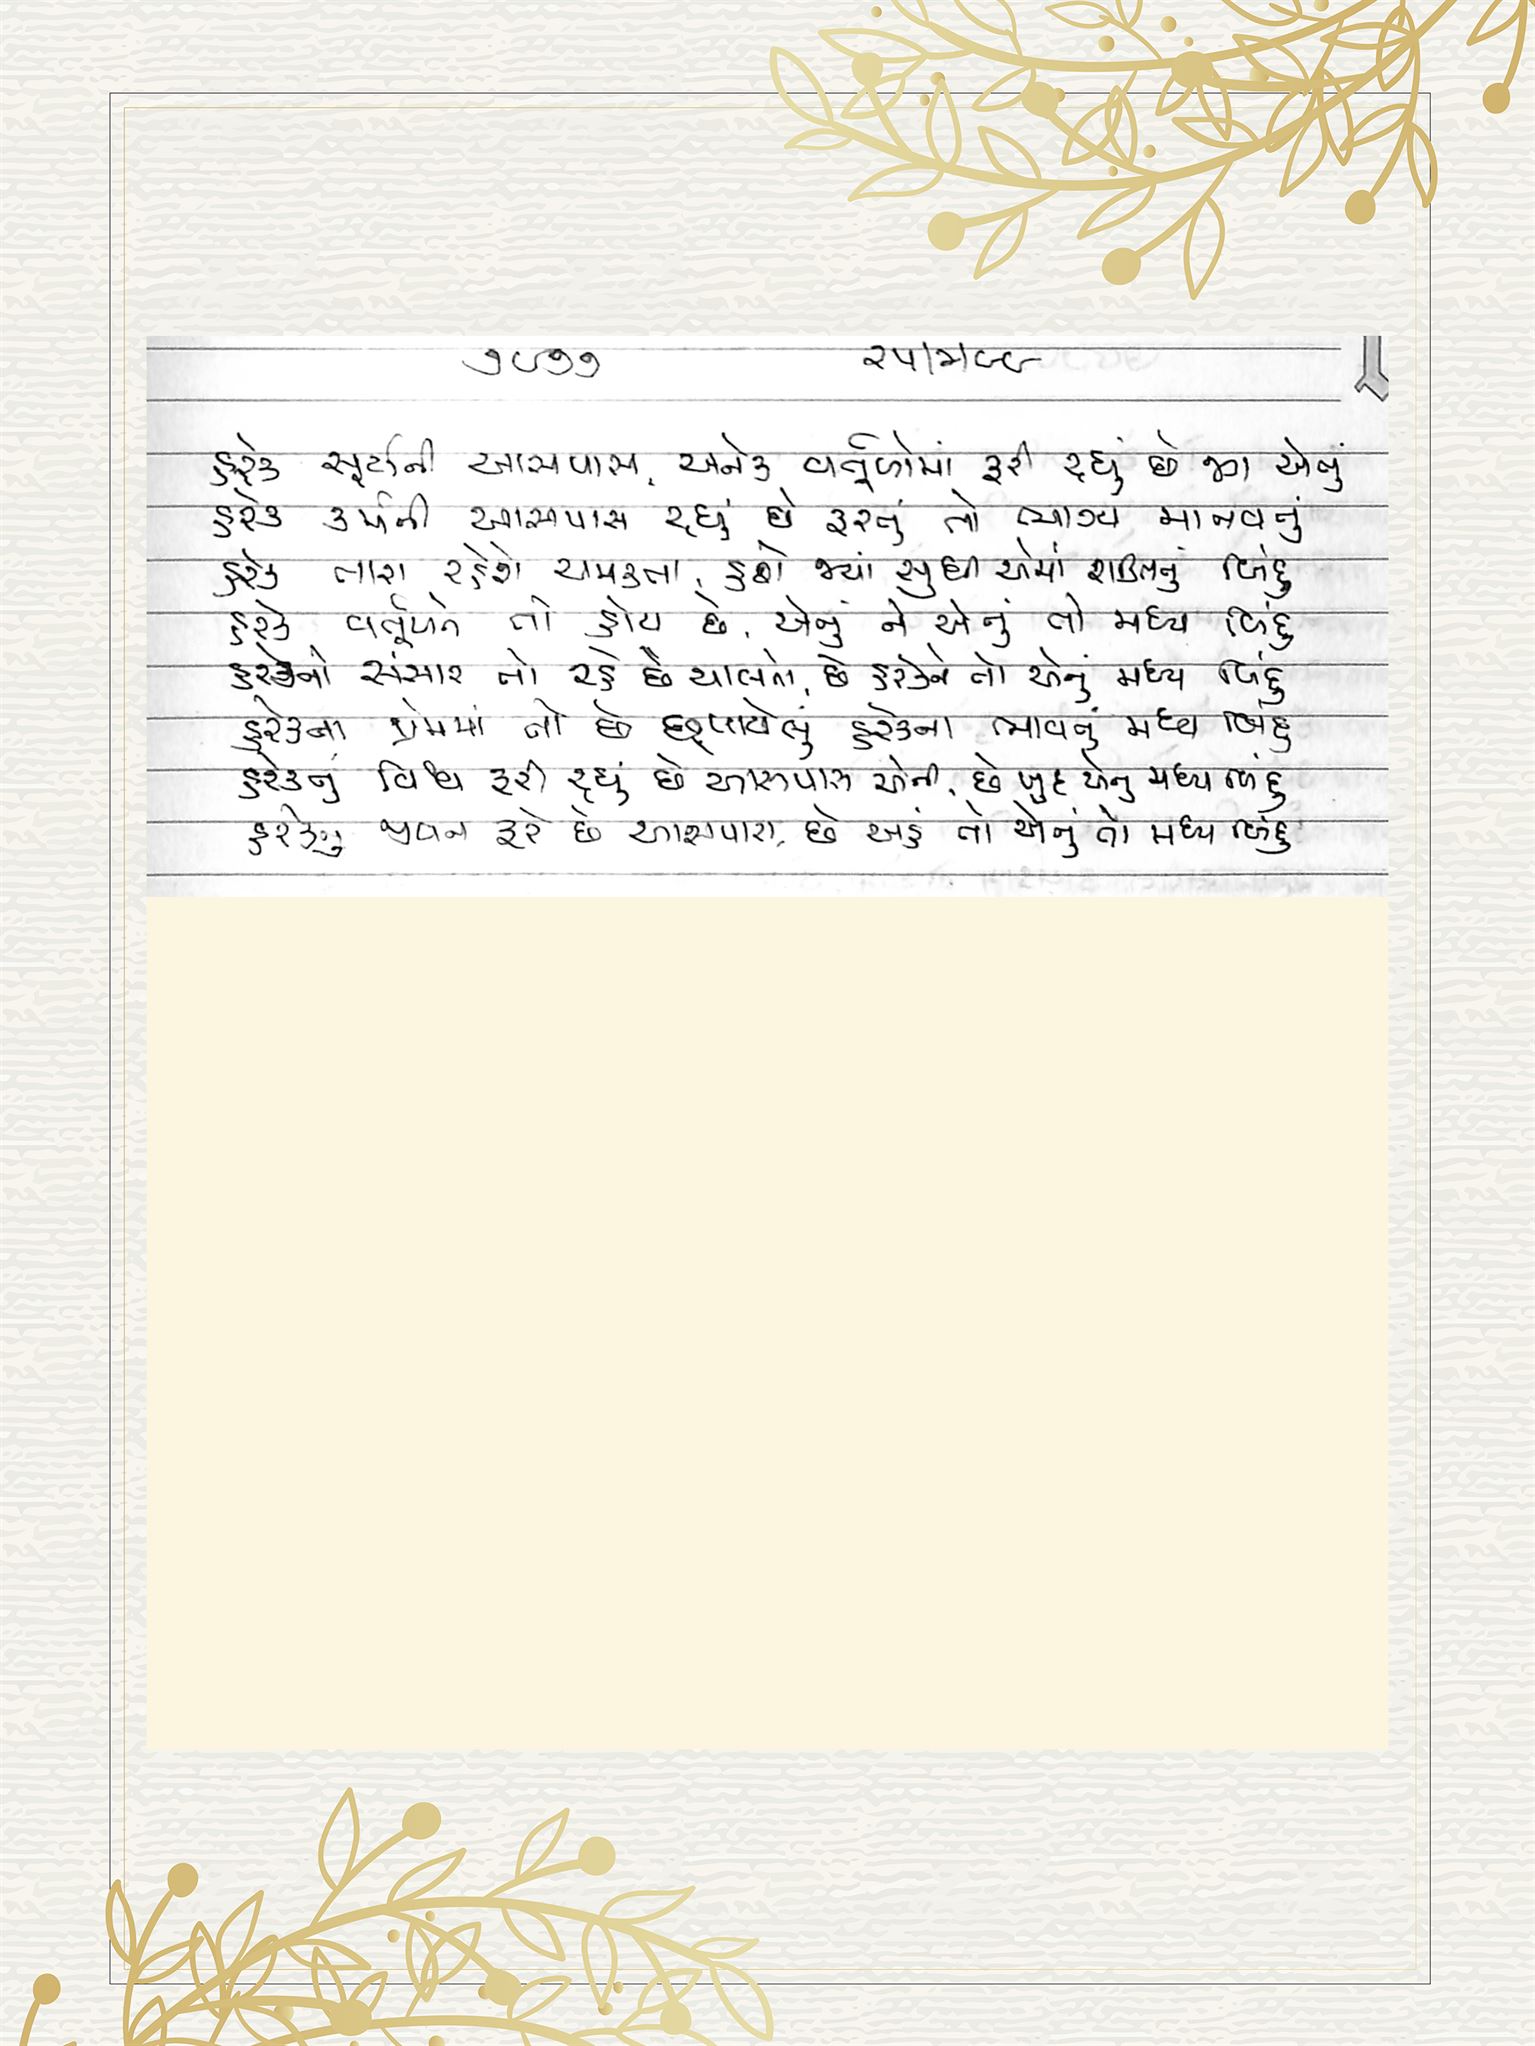 ૭૮૭૭ ૨૫/૨/૯૯
હરેક સૂર્યની આસપાસ, અનેક વર્તૂળોમાં ફરી રહ્યું છે જગ એનું
હરેક કર્મની આસપાસ રહ્યું છે ફરતું તો ભાગ્ય માનવનું
હરેક તારા રહેશે ચમકતા, હશે જ્યાં સુધી એમાં શક્તિનું બિંદુ
હરેક વર્તૂળને તો હોય છે, એનું ને એનું તો મધ્ય બિંદુ
હરેકનો સંસાર તો રહે છે ચાલતો, છે હરેકને તો એનું મધ્ય બિંદુ
હરેકના પ્રેમમાં તો છે છુપાયેલું હરેકના ભાવનું મધ્ય બિંદુ
હરેકનું વિશ્વ ફરી રહ્યું છે આસપાસ એની, છે ખુદ એનુ મધ્ય બિંદુ
હરેકનુ જીવન ફરે છે આસપાસ, છે અહં તો એનું તો મધ્ય બિંદુ